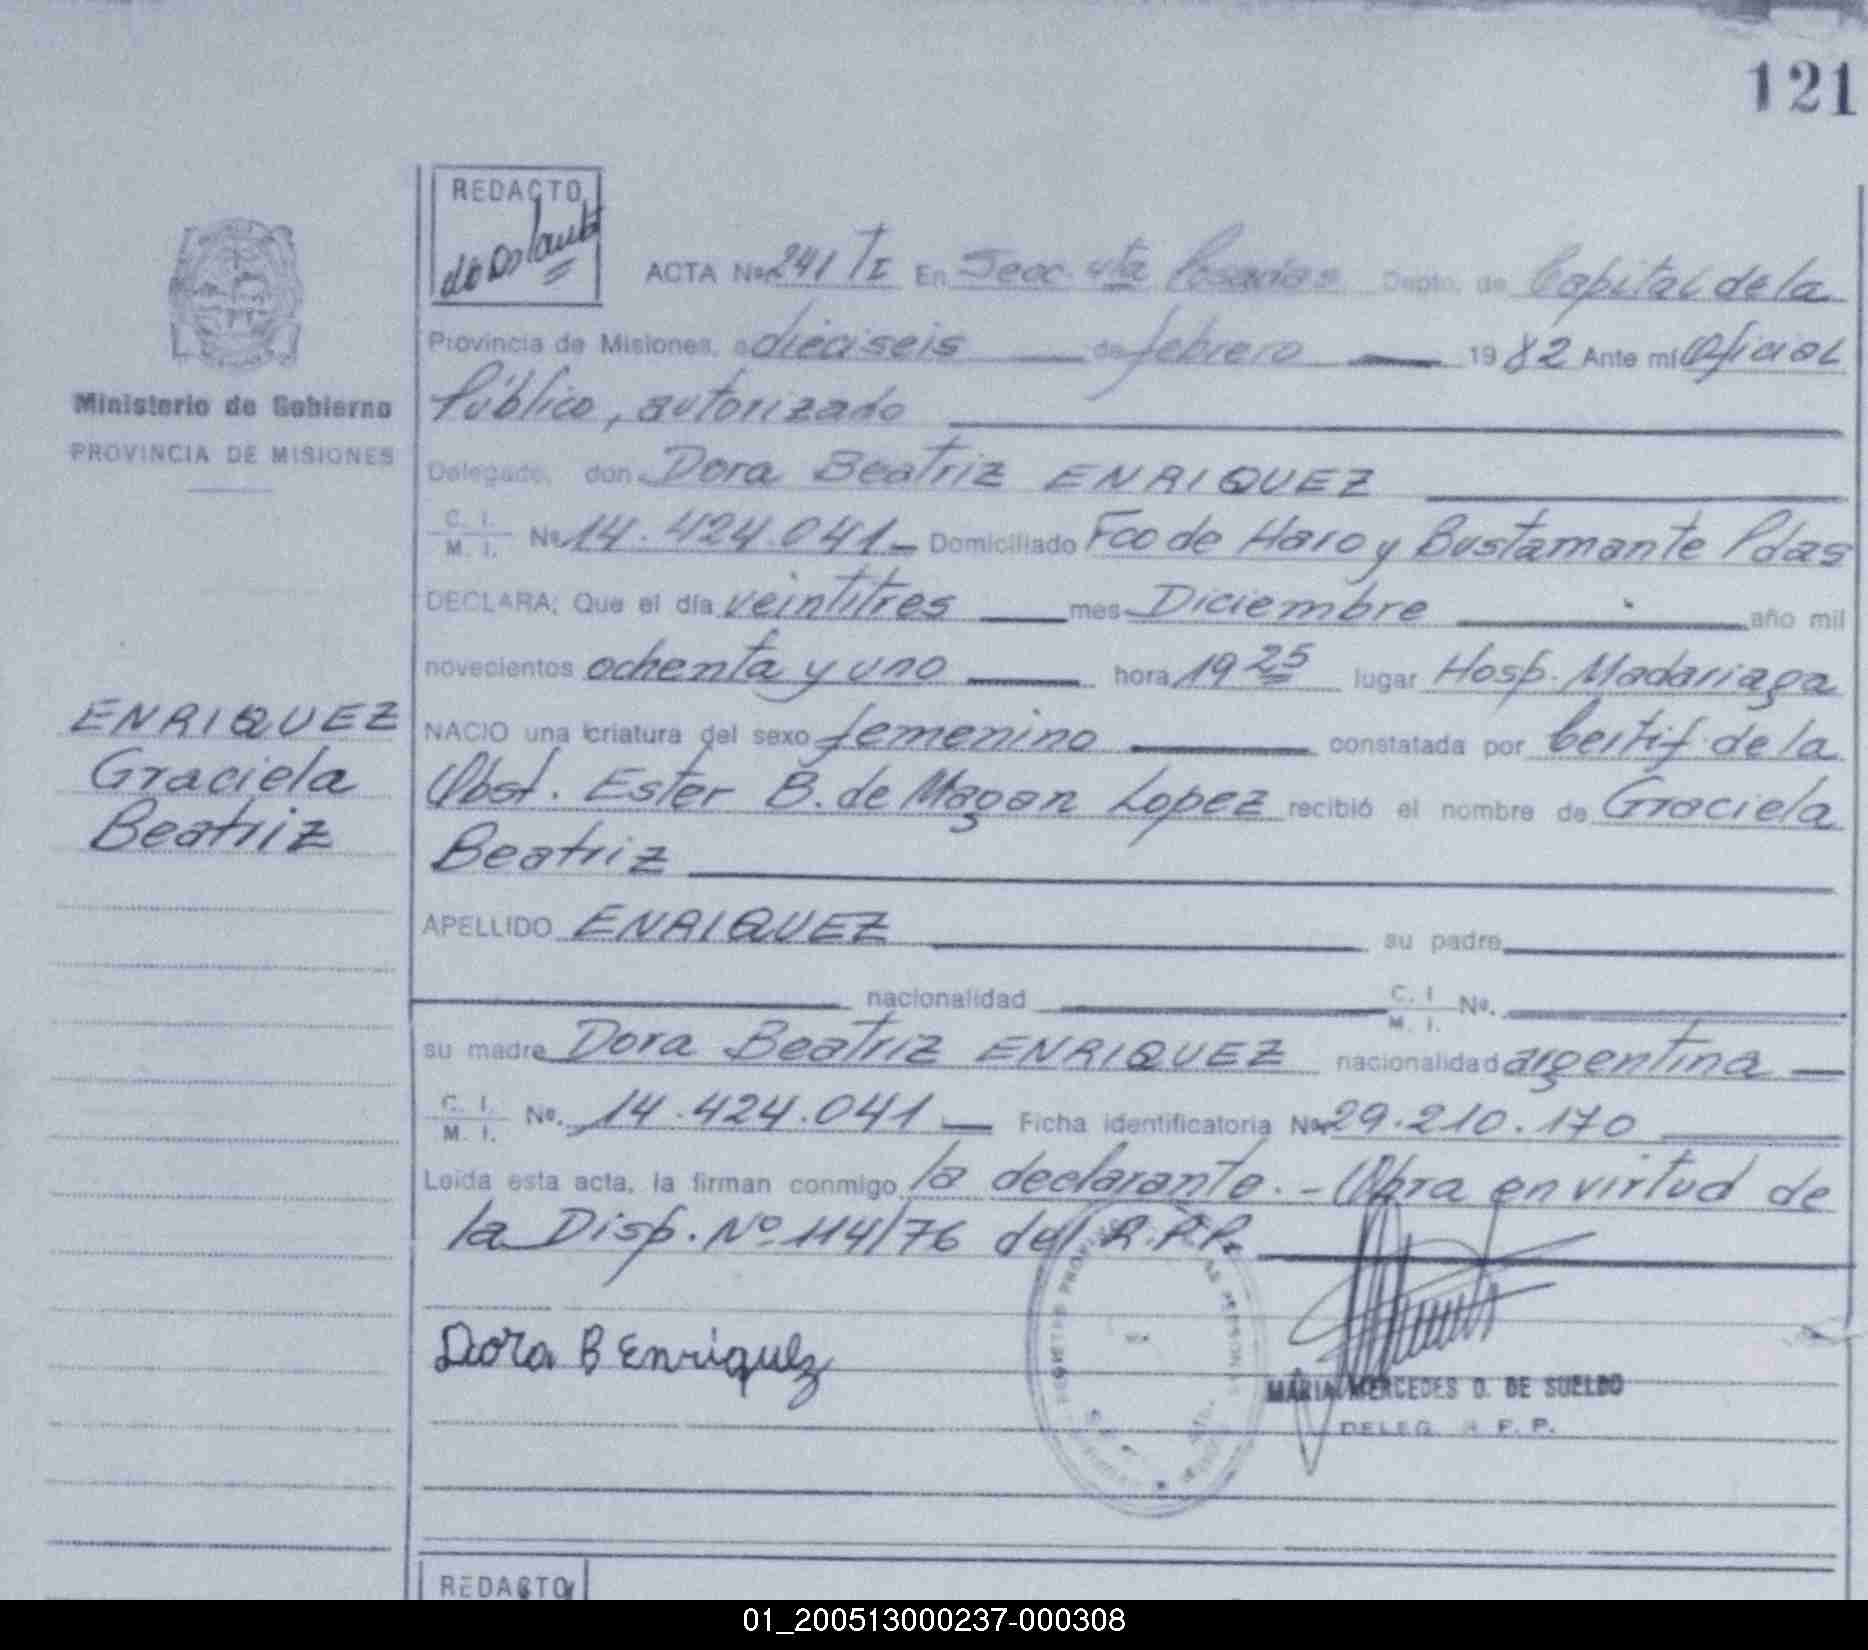 121
REDACTO
ACTA Nº 241 TI En Secc. 4ta Posadas Depto. de Capital de la
Provincia de Misiones, a dieciseis de febrero 1982 Ante mí Oficial
Público, autorizado
Ministerio de Gobierno
PROVINCIA DE MISIONES
Delegado, don Dora Beatriz ENRIQUEZ
C. I.
M. I. Nº 14.424.041 Domiciliado Fco de Haro y Bustamante Pdas
DECLARA; Que el día veintitres mes Diciembre año mil
novecientos ochenta y uno hora 19 25 lugar Hosp. Madariaga
ENRIQUEZ
Graciela
Beatriz
NACIO una criatura del sexo femenino constatada por Certif. de la
Obst. Ester B. de Magan Lopez recibió el nombre de Graciela
Beatriz
APELLIDO ENRIQUEZ su padre
nacionalidad C. I. M. I. Nº.
su madre Dora Beatriz ENRIQUEZ nacionalidad argentina
C. I.
M. I. Nº. 14.424.041 Ficha identificatoria Nº 29.210.170
Leída esta acta, la firman conmigo la declarante. - Obra en virtud de
la Disp. Nº 114/76 del R.P.P.
Dora B Enriquez
MARIA MERCEDES D. DE SUELDO
DELEG. R. P. P.
REDACTO
01_200513000237-000308